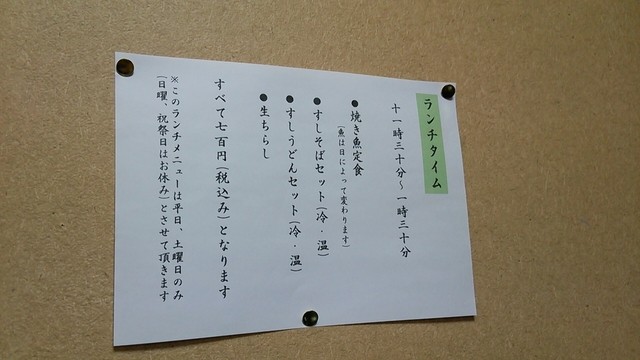 ランチタイム
十一時三十分～一時三十分
●焼き魚定食
(魚は日によって変わります)
●すしそばセット(冷・温)
●すしうどんセット(冷・温)
●生ちらし
すべて七百円(税込み)となります
※このランチメニューは平日、土曜日のみ
(日曜、祝祭日はお休み)とさせて頂きます